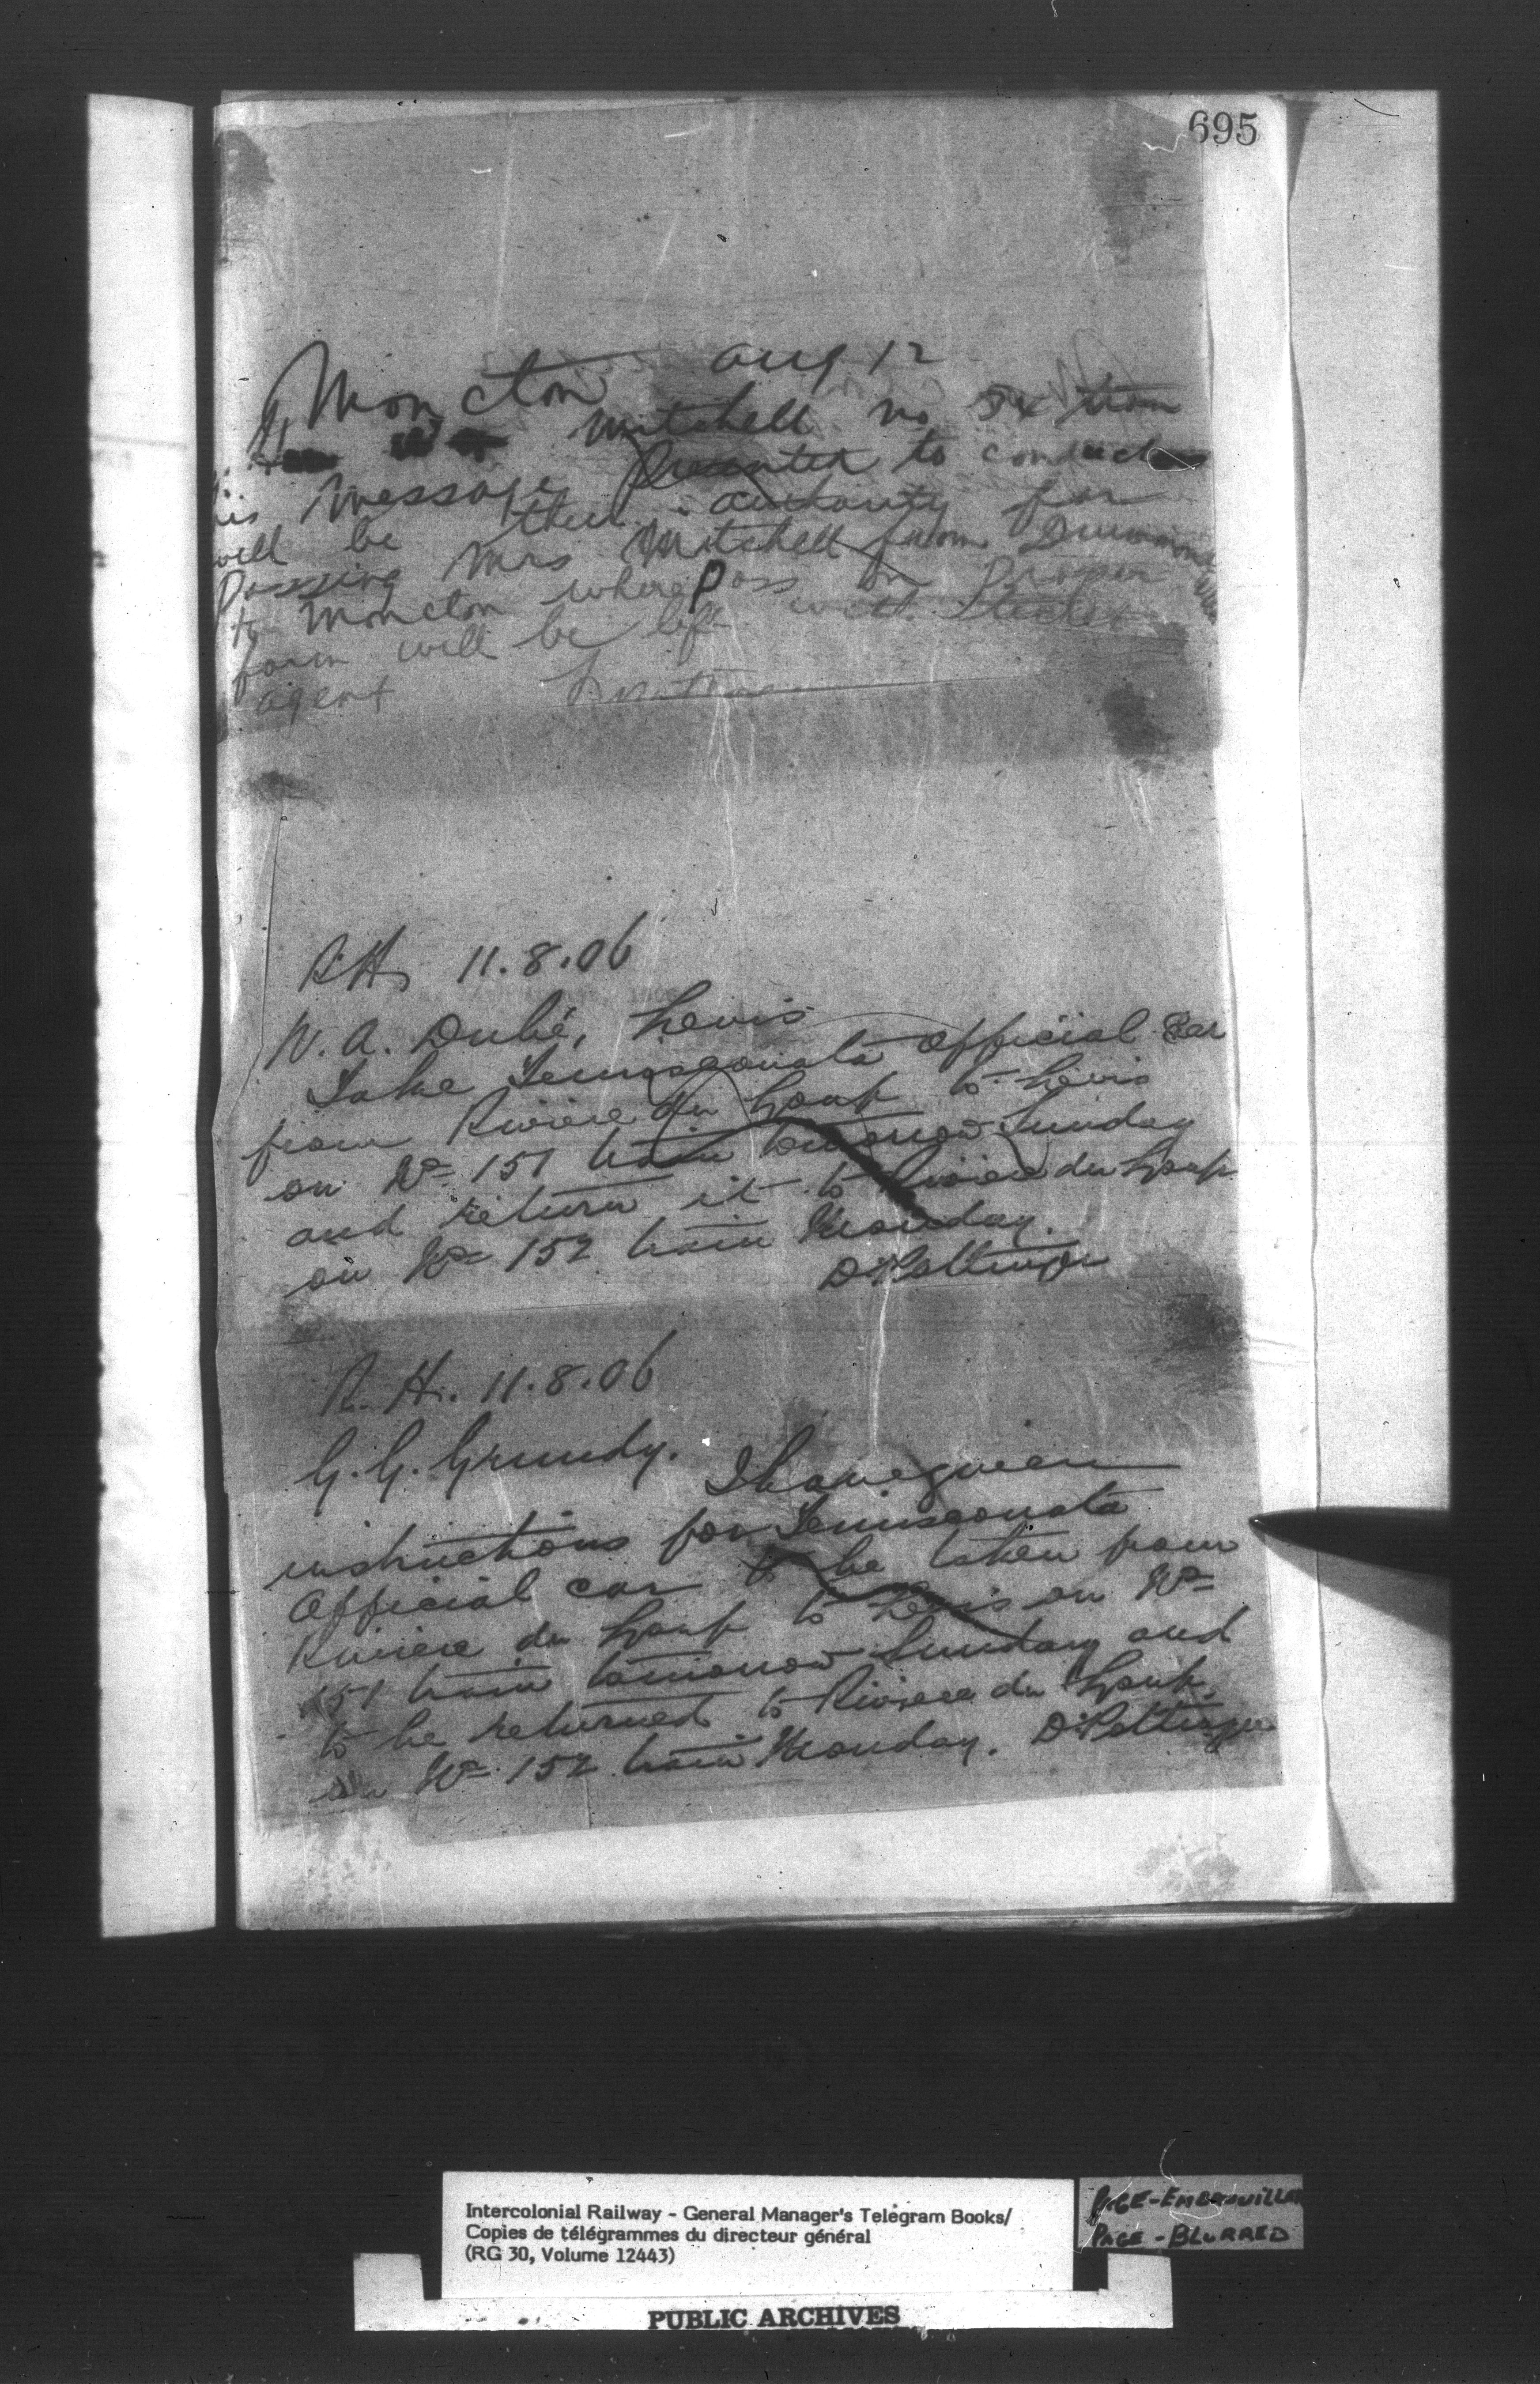 695
Moncton Aug 12
Mitchell no 34 train
Message Presented to conductor
will be their authority for
passing Mrs Mitchell from Drummondville
to Moncton where pass in proper
form will be left with
agent
R.H. 11.8.06
N. A. Dubé, Levis
Take Temiscouata official car
from Riviere du Loup to Levis
on No 151 train tomorrow Sunday
and return it to Riviere du Loup
on No 152 train Monday.
D Pottinger
R. H. 11.8.06
G. G. Grundy.
I have given
instructions for Temiscouata
Official car to be taken from
Riviere du Loup to Levis on No
151 train tomorrow Sunday and
to be returned to Riviere du Loup
on No 152 train Monday. D Pottinger
Intercolonial Railway - General Manager's Telegram Books/
Copies de télégrammes du directeur général
(RG 30, Volume 12443)
PAGE-EMBROUILLEE
PAGE-BLURRED
PUBLIC ARCHIVES